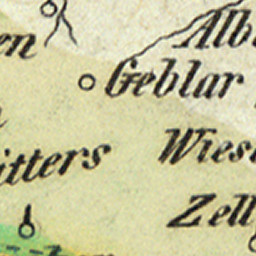 en Alb
Geblar
itters Wies
Zell